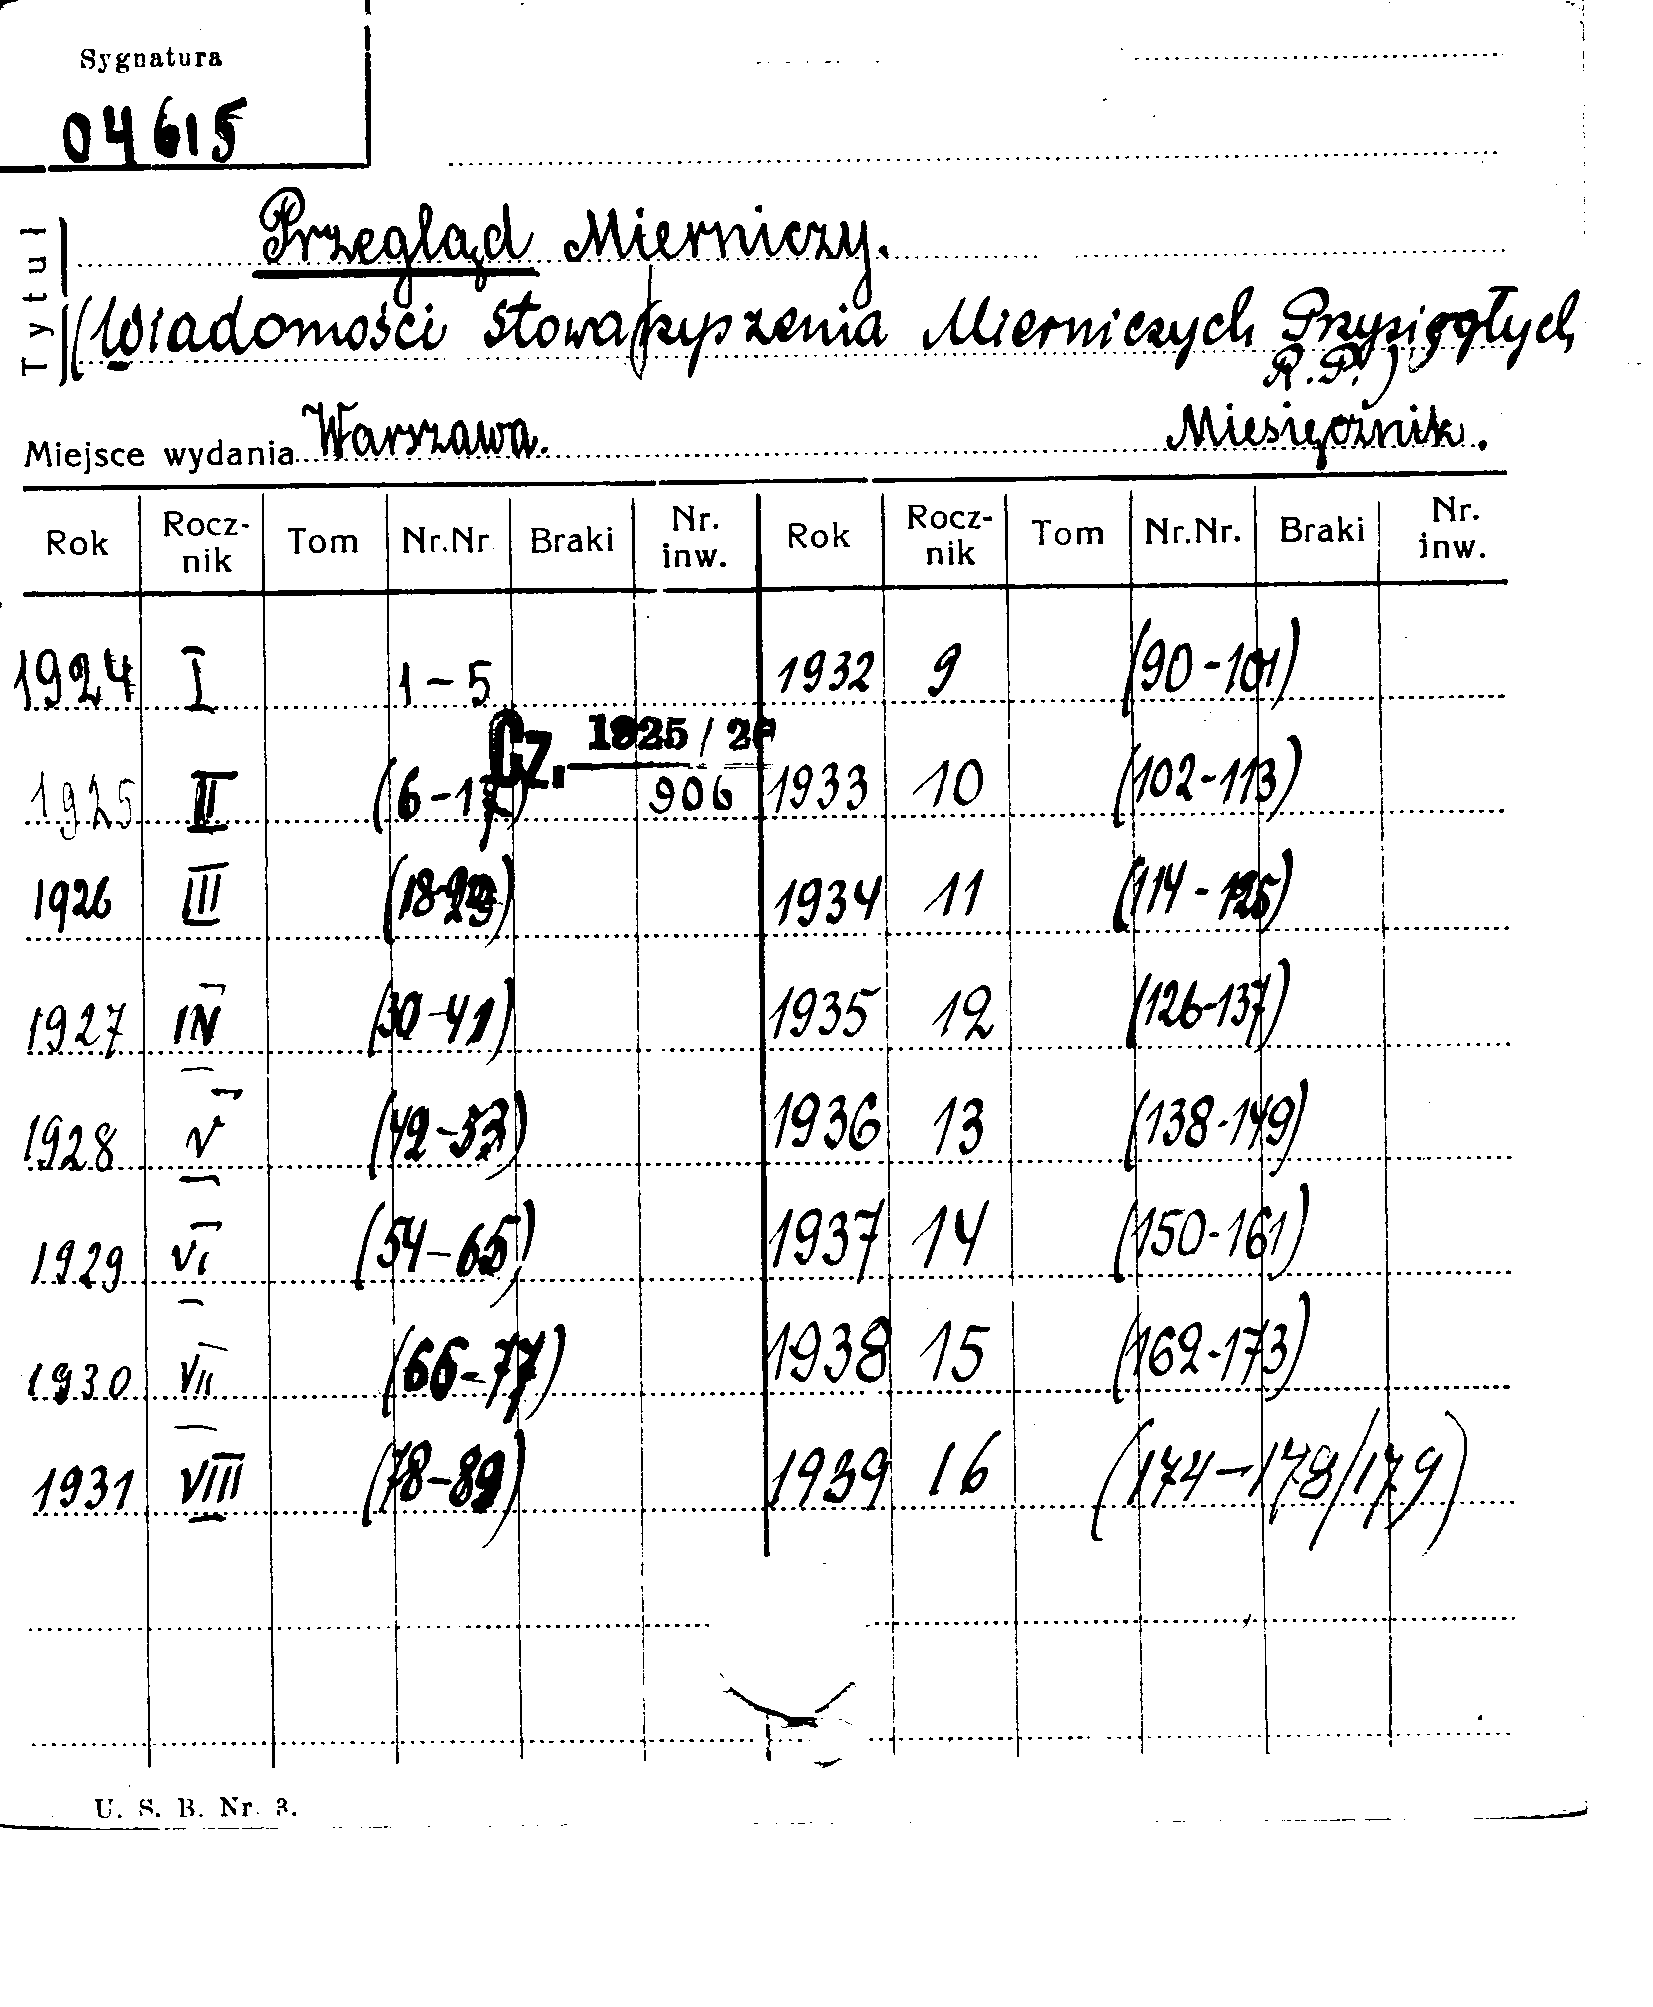 Sygnatura
04615
Tytuł
Przegląd Mierniczy.
(Wiadomości Stowarzyszenia Mierniczych Przysięgłych
R.P.)
Miejsce wydania Warszawa. Miesięcznik.
Rok Rocz-nik Tom Nr.Nr Braki Nr. inw. Rok Rocz-nik Tom Nr.Nr. Braki Nr. inw.
1924 I 1-5 1932 9 (90-101)
Cz. 1925/26
1925 II (6-17) 906 1933 10 (102-113)
1926 III (18-29) 1934 11 (114-125)
1927 IV (30-41) 1935 12 (126-137)
1928 V (42-53) 1936 13 (138-149)
1929 VI (54-65) 1937 14 (150-161)
1930 VII (66-77) 1938 15 (162-173)
1931 VIII (78-89) 1939 16 (174-178/179)
U. S. B. Nr. 3.